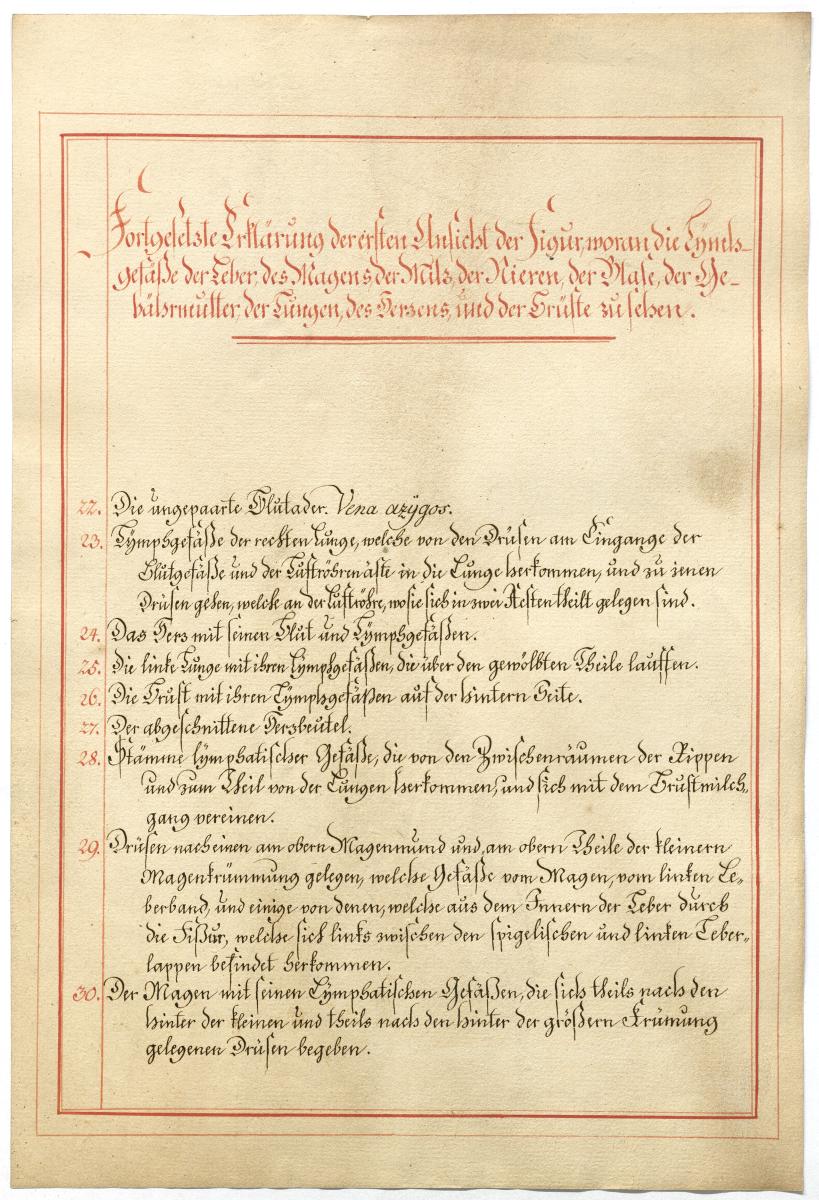 Fortgesetzte Erklärung der ersten Ansicht der Figur, woran die Lÿmch-
gefäße der Leber, des Magens, der Milz, der Nieren, der Blase, der Ge-
bährmutter, der Lungen, des Herzens, und der Brüste zu sehen.
22. Die ungepaarte Blutader. Vena azÿgos.
23. Lÿmphgefäße der rechten Lunge, welche von den Drüsen am Eingange der
Blutgefäße und der Luftröhrenäste in die Lunge herkommen, und zu jenen
Drüsen gehen, welche an der Luftröhre, wo sie sich in zwei Aesten theilt gelegen sind.
24. Das Herz mit seinen Blut und Lÿmphgefäßen.
25. Die linke Lunge mit ihren Lÿmphgefäßen, die über den gewölbten Theile lauffen.
26. Die Brust mit ihren Lÿmphgefäßen auf der hintern Seite.
27. Der abgeschnittene Herzbeutel.
28. Stämme lÿmphatischer Gefäße, die von den Zwischenräumen der Rippen
und zum Theil von der Lungen herkommen, und sich mit dem Brustmilch-
gang vereinen.
29. Drüsen nach einen am obern Magenmund und am obern Theile der kleinern
Magenkrümmung gelegen, welche Gefäße vom Magen, vom linken Le-
berband, und einige von denen, welche aus dem Innern der Leber durch
die Fißur, welche sich links zwischen den spigelischen und linken Leber-
lappen befindet herkommen.
30. Der Magen mit seinen Lÿmphatischen Gefäßen, die sich theils nach den
hinter der kleinen und theils nach den hinter der größern Krümung
gelegenen Drüsen begeben.